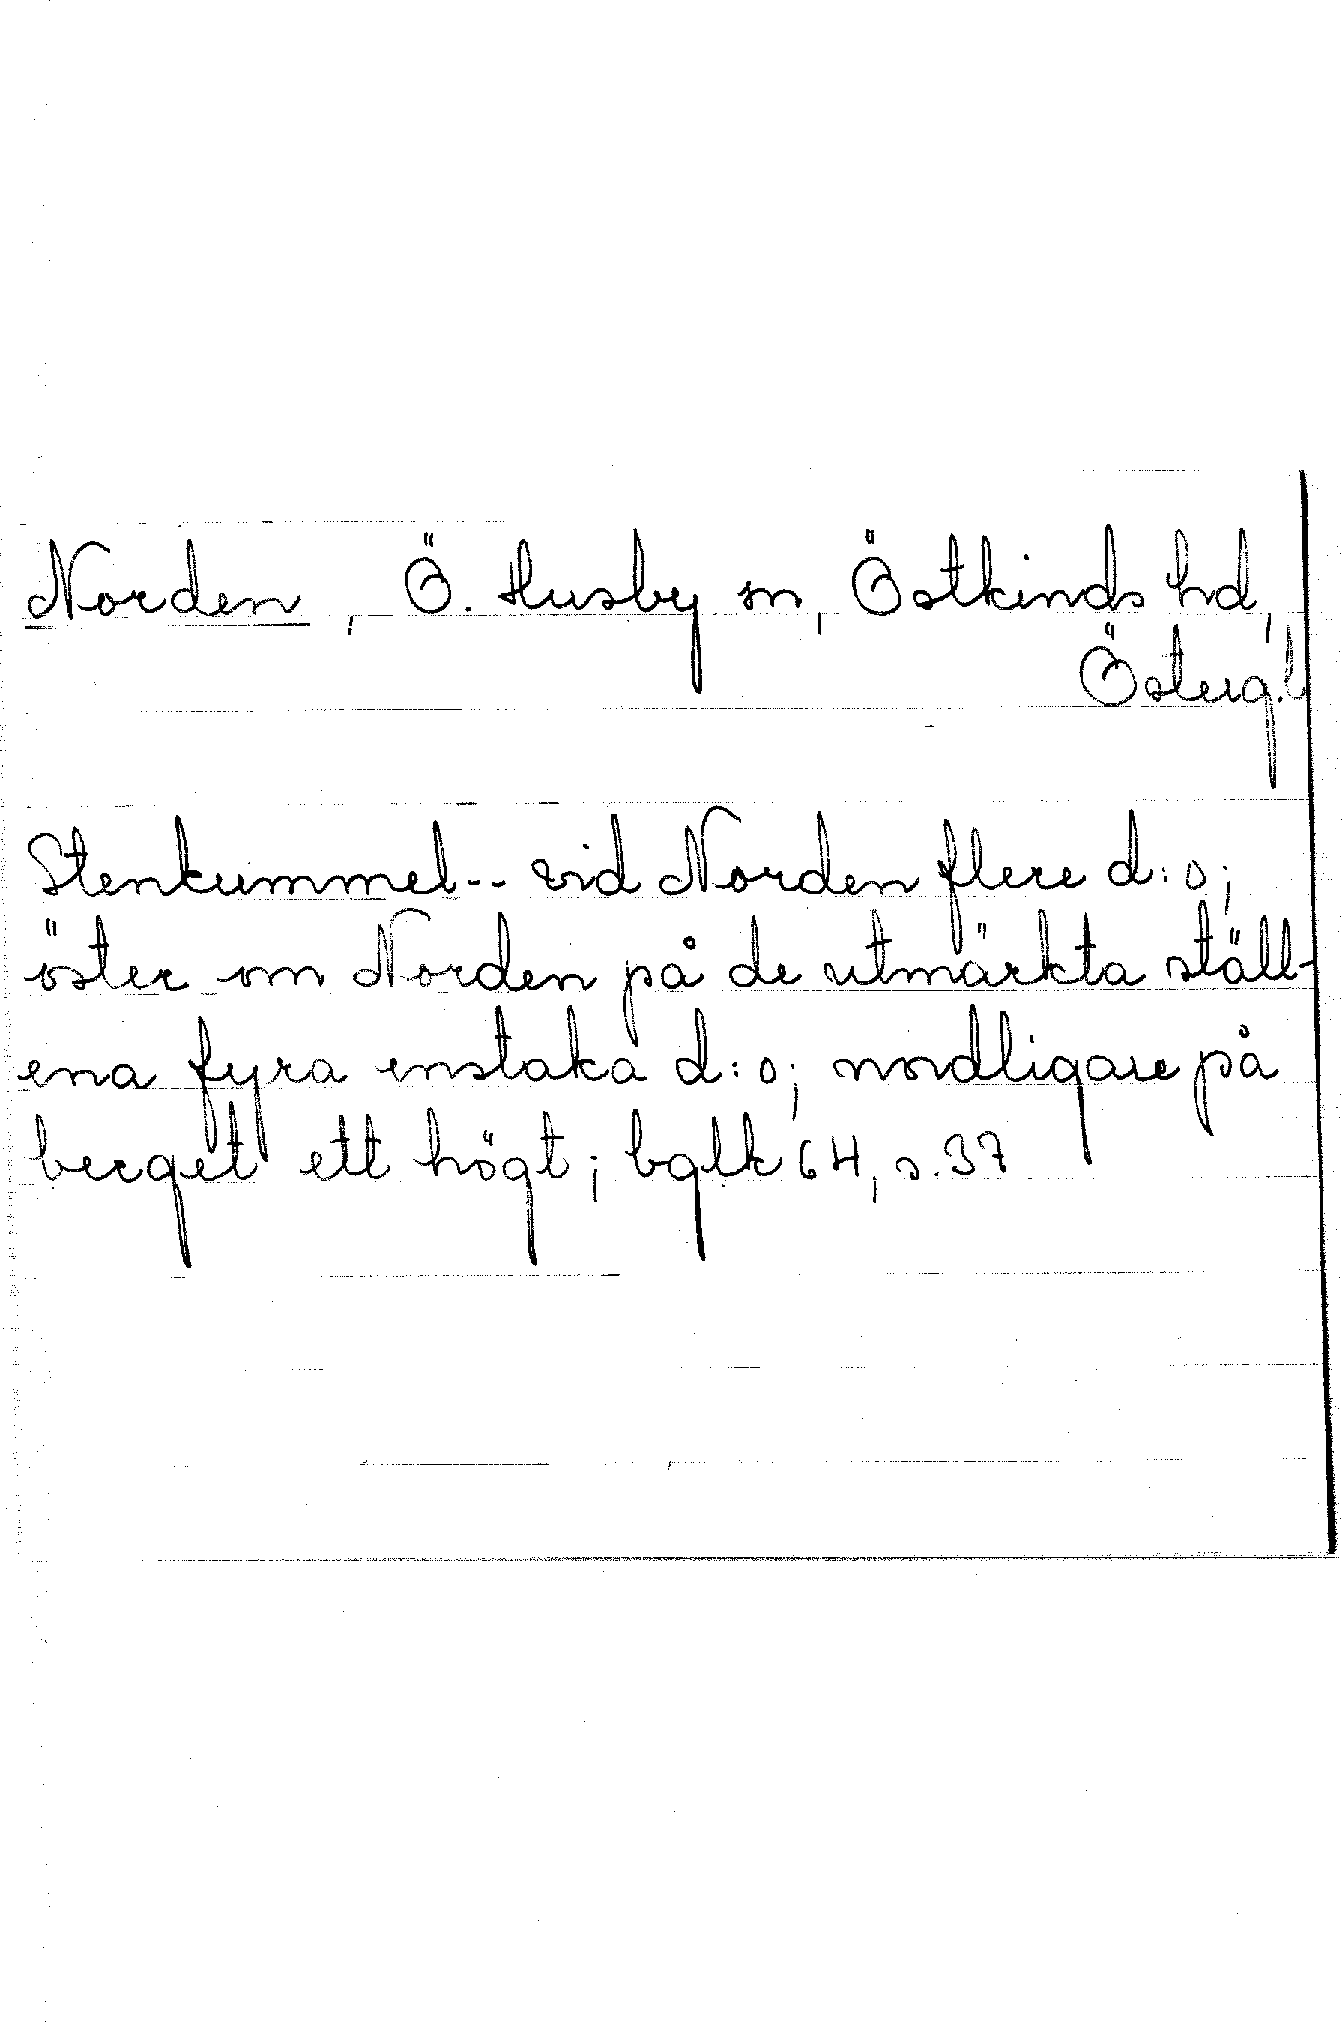 Norden, Ö. Husby sn, Östkinds hd,
Österg.l
Stenkummel-- vid Norden flere d:o;
öster om Norden på de utmärkta ställ-
ena fyra enstaka d:o; nordligare på
berget ett högt; bglk 64, s. 37